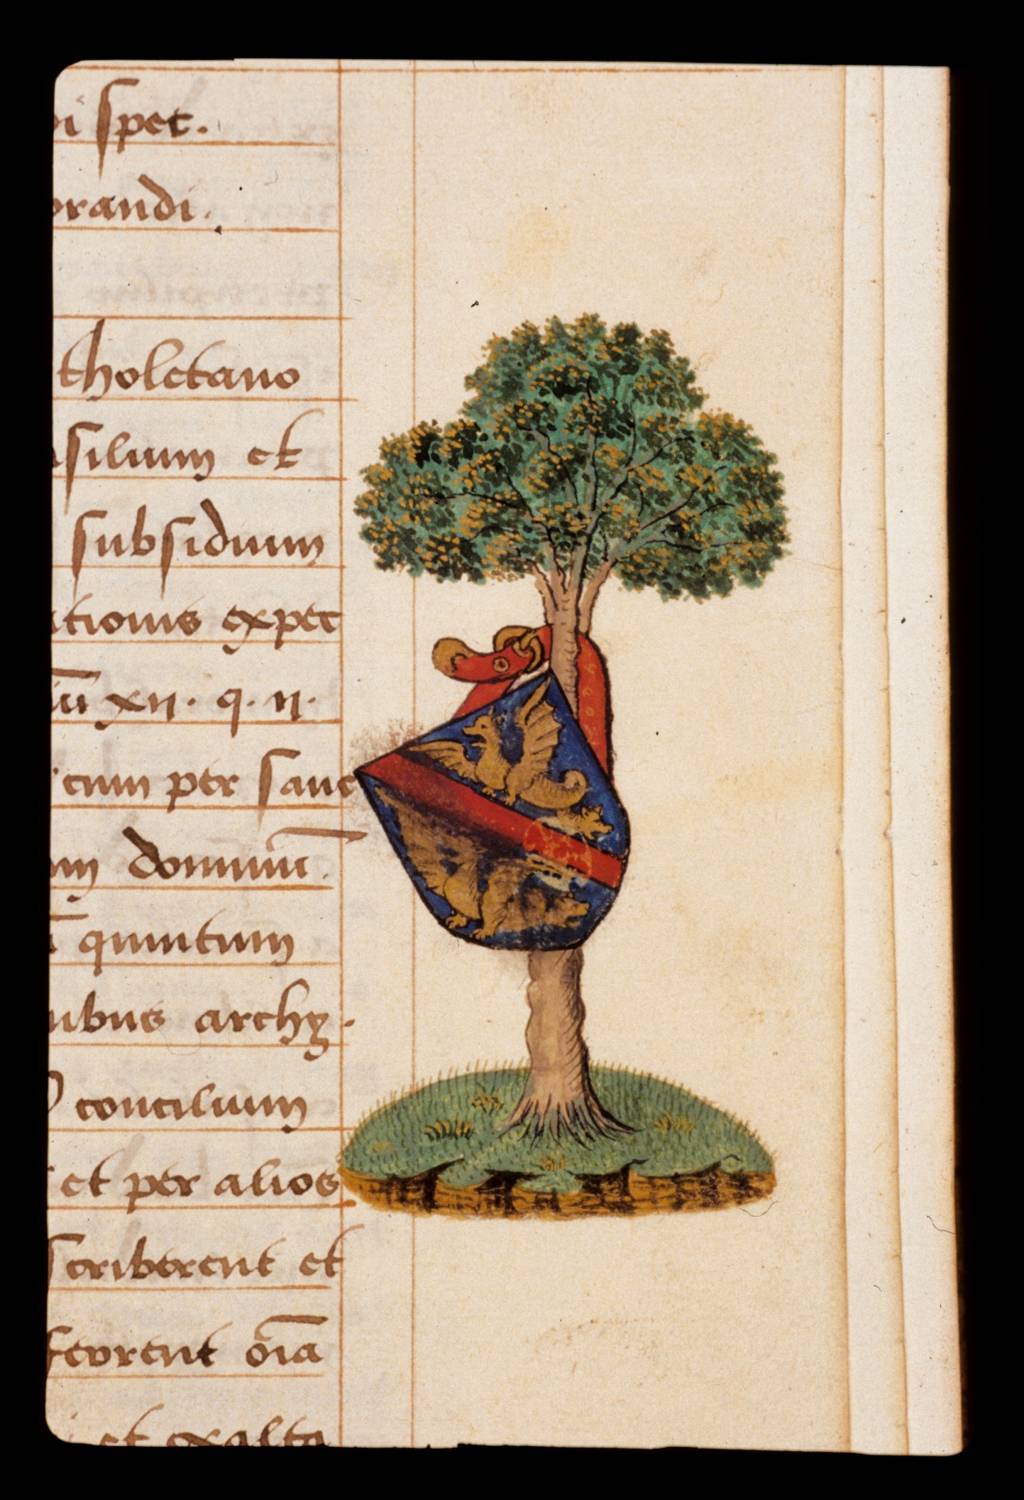 spet.
orandi.
tholetano
silium et
subsidium
tionis expet
xii. q. ii.
cum per sanc
domınū.
quintum
ibus archy.
concilium
et per alios
scriberent et
ferrent oīa
et exalta